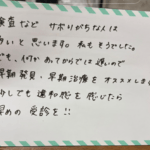 検査など サボりがちな人は
多いと思います。私もそうでした。
でも、何かあってからでは遅いので
早期発見・早期治療をオススメしま
少しでも違和感を感じたら
早めの 受診を!!